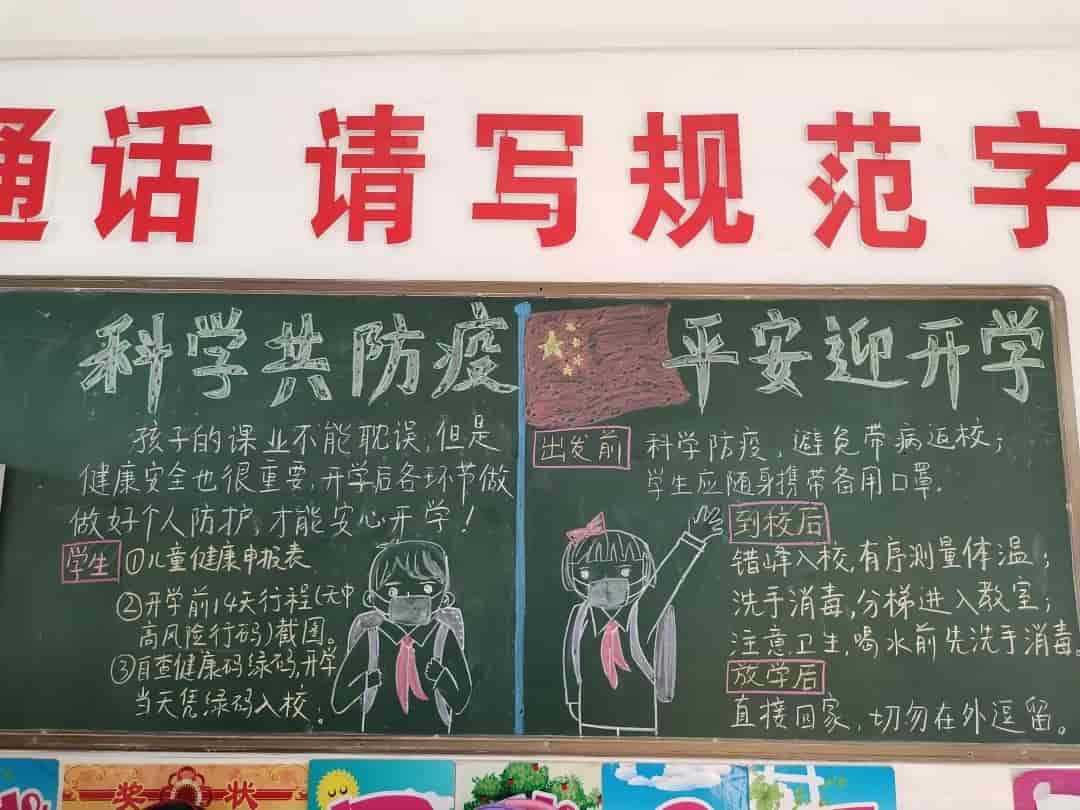 通话 请写规范字
科学共防疫
孩子的课业不能耽误,但是
健康安全也很重要,开学后各环节做
做好个人防护,才能安心开学!
学生 ①儿童健康申报表
②开学前14天行程(无中
高风险行码)截图。
③自查健康码绿码,开学
当天凭绿码入校。
平安迎开学
出发前 科学防疫,避免带病返校;
学生应随身携带备用口罩.
到校后
错峰入校,有序测量体温;
洗手消毒,分梯进入教室;
注意卫生,喝水前先洗手消毒。
放学后
直接回家,切勿在外逗留。
奖状